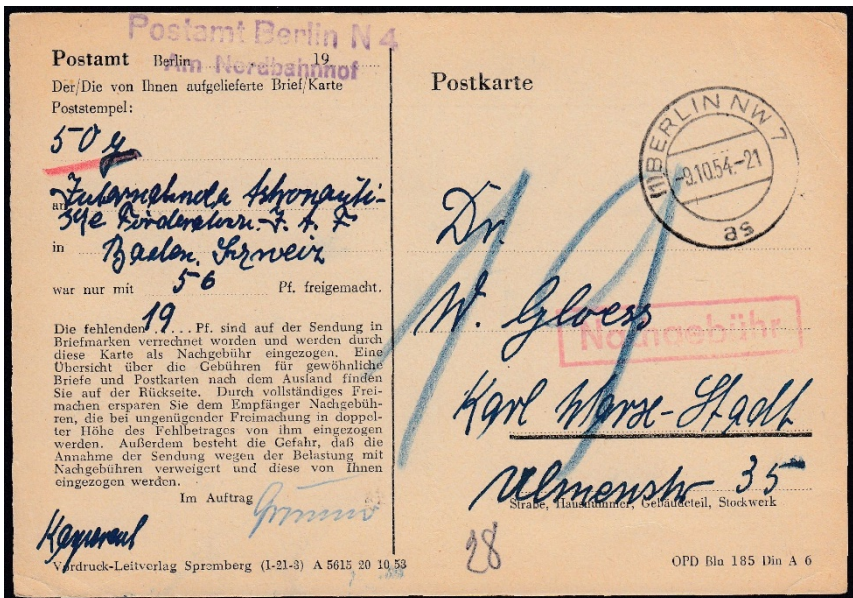 Postamt Berlin N 4
Am Nordbahnhof
Postamt Berlin 19
Der/Die von Ihnen aufgelieferte Brief/Karte
Poststempel:
50 g
an Internationale Astronauti-
sche Förderation - I. A. F
in Baden. Schweiz
war nur mit 56 Pf. freigemacht.
Die fehlenden 19 ... Pf. sind auf der Sendung in
Briefmarken verrechnet worden und werden durch
diese Karte als Nachgebühr eingezogen. Eine
Übersicht über die Gebühren für gewöhnliche
Briefe und Postkarten nach dem Ausland finden
Sie auf der Rückseite. Durch vollständiges Frei-
machen ersparen Sie dem Empfänger Nachgebüh-
ren, die bei ungenügender Freimachung in doppel-
ter Höhe des Fehlbetrages von ihm eingezogen
werden. Außerdem besteht die Gefahr, daß die
Annahme der Sendung wegen der Belastung mit
Nachgebühren verweigert und diese von Ihnen
eingezogen werden.
Im Auftrag
Vordruck-Leitverlag Spremberg (I-21-3) A 5615 20 10 53
Postkarte
(1) BERLIN NW 7
-9.10.54.-21
as
19
Dr.
W. Gloess
Nachgebühr
Karl Marx-Stadt
Ulmenstr 35
Straße, Hausnummer, Gebäudeteil, Stockwerk
28
OPD Bln 185 Din A 6